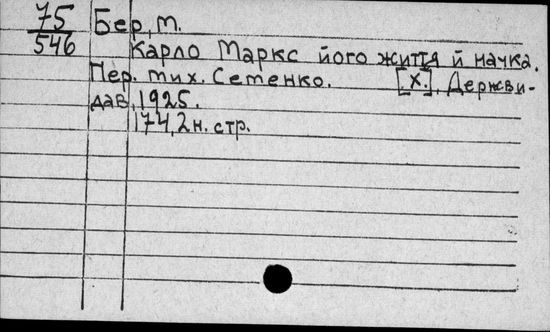 75 Бер, М.
546 Карло Маркс його життя й начка.
Пер. тих. Сетенко. [Х.], Держви-
дав, 1925.
174, 2н. стр.